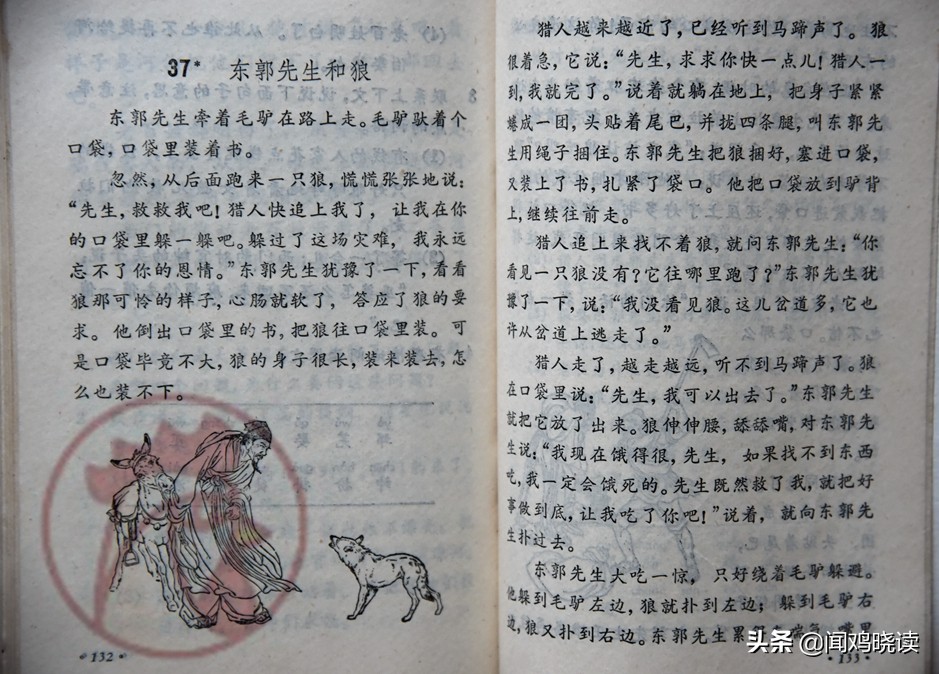 37* 东郭先生和狼
东郭先生牵着毛驴在路上走。毛驴驮着个
口袋，口袋里装着书。
忽然，从后面跑来一只狼，慌慌张张地说：
“先生，救救我吧！猎人快追上我了，让我在你
的口袋里躲一躲吧。躲过了这场灾难，我永远
忘不了你的恩情。”东郭先生犹豫了一下，看看
狼那可怜的样子，心肠就软了，答应了狼的要
求。他倒出口袋里的书，把狼往口袋里装。可
是口袋毕竟不大，狼的身子很长，装来装去，怎
么也装不下。
·132·
猎人越来越近了，已经听到马蹄声了。狼
很着急，它说：“先生，求求你快一点儿！猎人一
到，我就完了。”说着就躺在地上，把身子紧紧
蜷成一团，头贴着尾巴，并拢四条腿，叫东郭先
生用绳子捆住。东郭先生把狼捆好，塞进口袋，
又装上了书，扎紧了袋口。他把口袋放到驴背
上，继续往前走。
猎人追上来找不着狼，就问东郭先生：“你
看见一只狼没有？它往哪里跑了？”东郭先生犹
豫了一下，说：“我没看见狼。这儿岔道多，它也
许从岔道上逃走了。”
猎人走了，越走越远，听不到马蹄声了。狼
在口袋里说：“先生，我可以出去了。”东郭先生
就把它放了出来。狼伸伸腰，舔舔嘴，对东郭先
生说：“我现在饿得很，先生，如果找不到东西
吃，我一定会饿死的。先生既然救了我，就把好
事做到底，让我吃了你吧！”说着，就向东郭先
生扑过去。
东郭先生大吃一惊，只好绕着毛驴躲避。
他躲到毛驴左边，狼就扑到左边；躲到毛驴右
边，狼又扑到右边。东郭先生累得 嘴里
·133·
头条 @闻鸡晓读